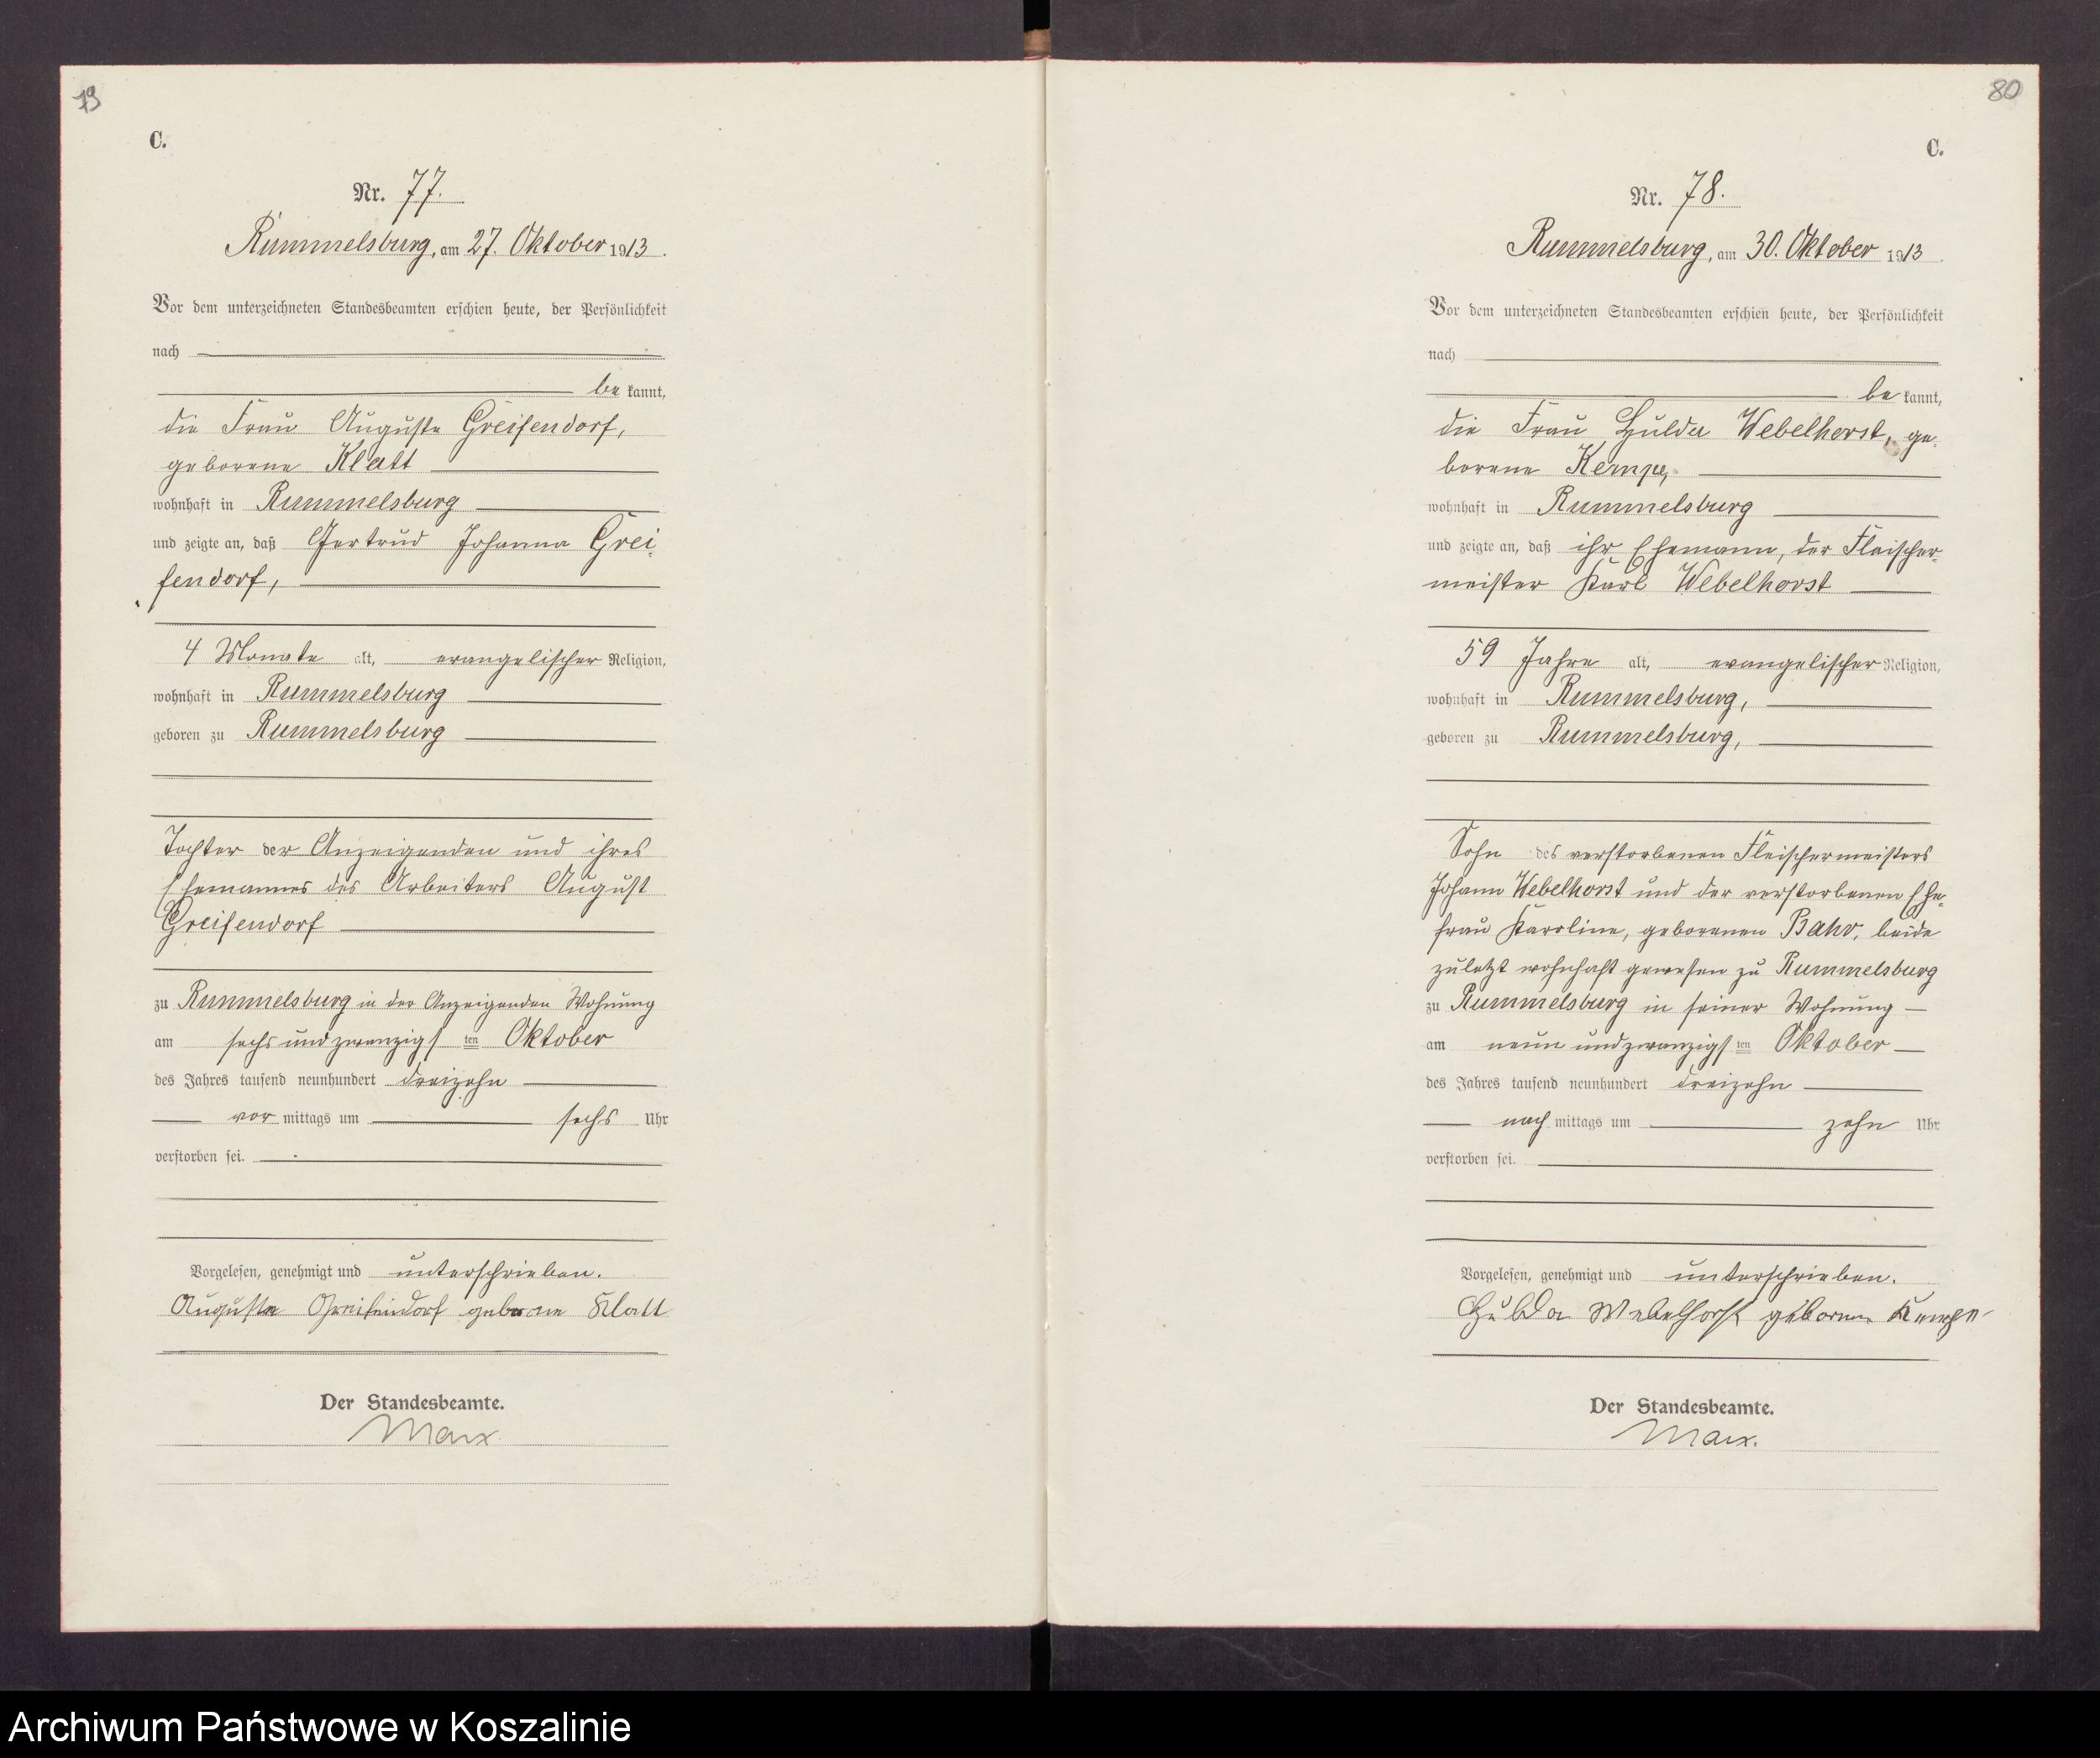 79
C.
Nr. 77.
Rummelsburg, am 27. Oktober 1913.
Vor dem unterzeichneten Standesbeamten erschien heute, der Persönlichkeit
nach
be kannt,
die Frau Auguste Greifendorf,
geborene Klatt
wohnhaft in Rummelsburg
und zeigte an, daß Gertrud Johanna Grei-
fendorf,
4 Monate alt, evangelischer Religion,
wohnhaft in Rummelsburg
geboren zu Rummelsburg
Tochter der Anzeigenden und ihres
Ehemannes des Arbeiters August
Greifendorf
zu Rummelsburg in der Anzeigenden Wohnung
am sechs und zwanzigs ten Oktober
des Jahres tausend neunhundert dreizehn
vor mittags um sechs Uhr
verstorben sei.
Vorgelesen, genehmigt und unterschrieben.
Auguste Greifendorf geborene Klatt
Der Standesbeamte.
Marx.
80
C.
Nr. 78.
Rummelsburg, am 30. Oktober 1913.
Vor dem unterzeichneten Standesbeamten erschien heute, der Persönlichkeit
nach
be kannt,
die Frau Hulda Webelhorst, ge-
borene Kempe,
wohnhaft in Rummelsburg
und zeigte an, daß ihr Ehemann, der Fleischer-
meister Karl Webelhorst
59 Jahre alt, evangelischer Religion,
wohnhaft in Rummelsburg,
geboren zu Rummelsburg,
Sohn des verstorbenen Fleischermeisters
Johann Webelhorst und der verstorbenen Ehe-
frau Karoline, geborenen Bahr, beide
zuletzt wohnhaft gewesen zu Rummelsburg
zu Rummelsburg in seiner Wohnung
am neun und zwanzigs ten Oktober
des Jahres tausend neunhundert dreizehn
nach mittags um zehn Uhr
verstorben sei.
Vorgelesen, genehmigt und unterschrieben.
Hulda Webelhorst geborene Kempe
Der Standesbeamte.
Marx.
Archiwum Państwowe w Koszalinie